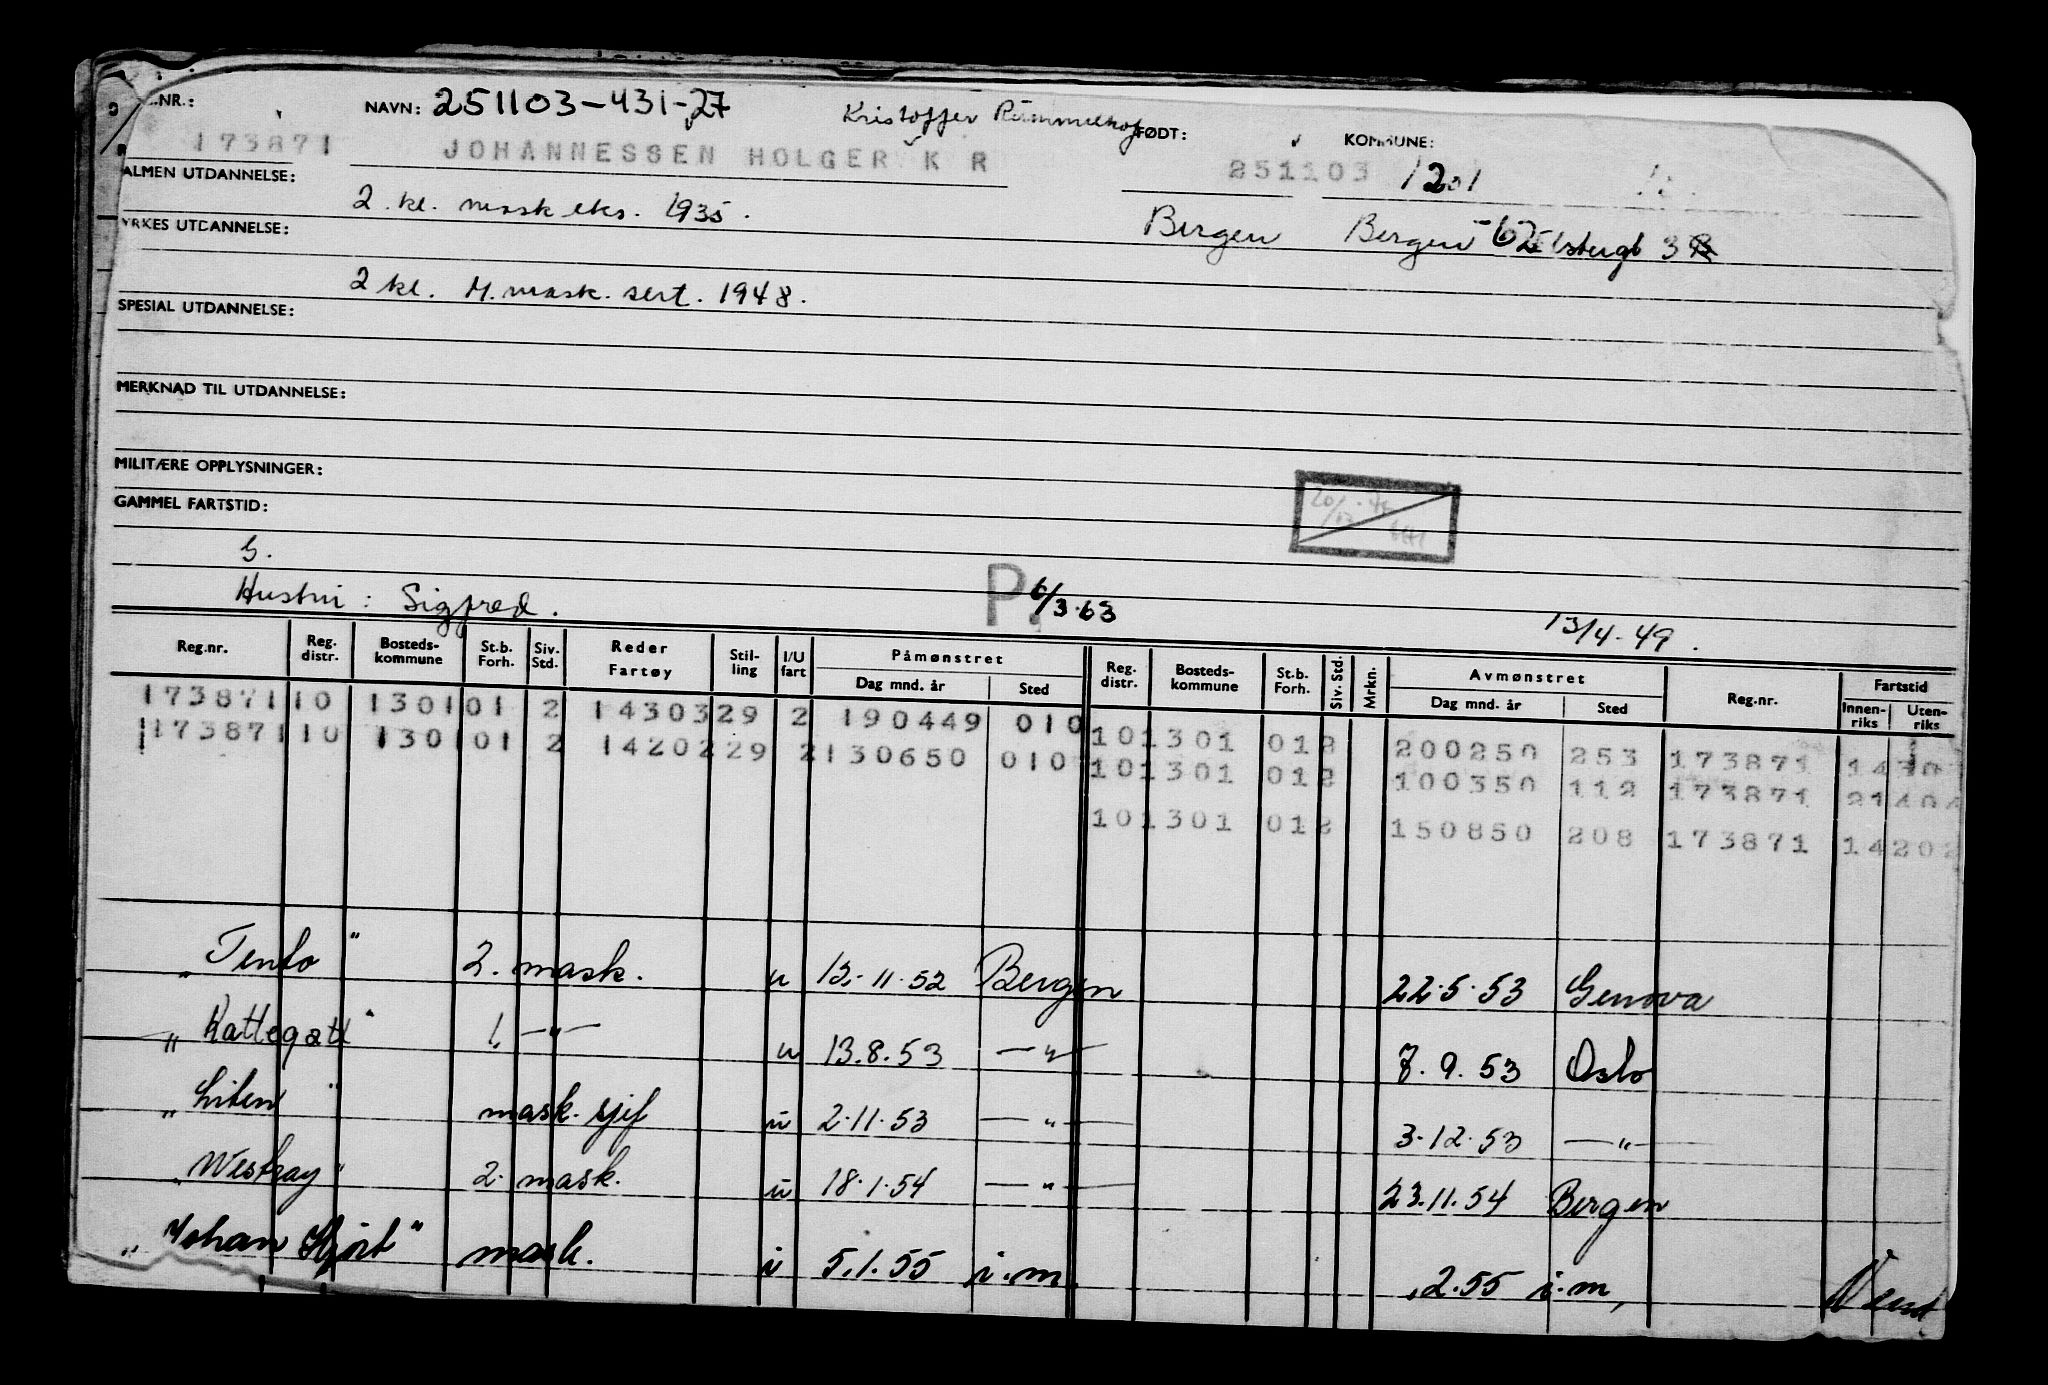 .NR.: NAVN: 251103-431-27 Kristoffer FØDT: KOMMUNE:
173871 JOHANNESSEN HOLGER K R 251103 1201
ALMEN UTDANNELSE:
2. kl. mask.eks. 1935. Bergen Bergen -62
YRKES UTDANNELSE:
2 kl. M. mask. sert. 1948.
SPESIAL UTDANNELSE:
MERKNAD TIL UTDANNELSE:
MILITÆRE OPPLYSNINGER:
GAMMEL FARTSTID:
G.
Hustru: Sigfred. P. 6/3.63 13/4-49.
Reg.nr. Reg. distr. Bosteds-kommune St.b. Forh. Siv. Std. Reder Fartøy Stil-ling I/U fart Påmønstret Dag mnd. år Sted Reg. distr. Bosteds-kommune St.b. Forh. Siv. Std. Mrkn. Avmønstret Dag mnd. år Sted Reg.nr. Fartstid Innen-riks Uten-riks
173871 10 1301 01 2 14303 29 2 190449 010 10 1301 01 2 200250 253 173871
173871 10 1301 01 2 14202 29 2 130650 010 10 1301 01 2 100350 112 173871
10 1301 01 2 150850 208 173871 14202
2. mask. u 12.11.52 Bergen 22.5.53 Genova
„Kattegatt" 1. —„— u 13.8.53 —„— 7.9.53 Oslo
mask. sjef u 2.11.53 —„— 3.12.53 —„—
„Westray" 2. mask. u 18.1.54 —„— 23.11.54 Bergen
„Johan Hjort" mask. i 5.1.55 i.m. .2.55 i.m, Vend